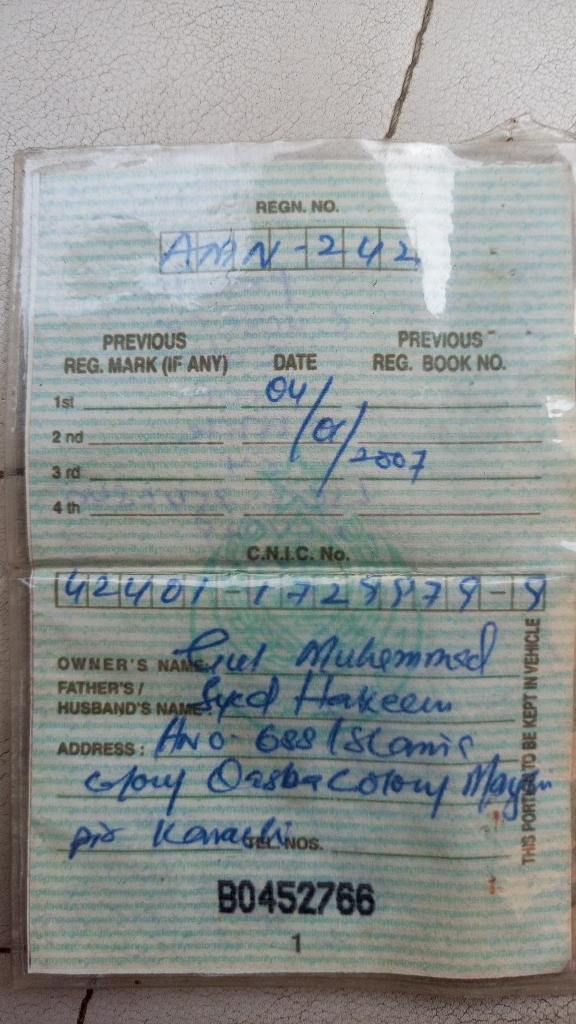 REGN. NO.
AMN-242
PREVIOUS REG. MARK (IF ANY) DATE PREVIOUS REG. BOOK NO.
1st
2nd
3rd
4th
04/01/2007
C.N.I.C. No.
42401-1729979-9
OWNER'S NAME: Gul Muhammad
FATHER'S / HUSBAND'S NAME Syed Hakeem
ADDRESS: A NO. 688 Islamic
colony Qasba Colony
pir Karachi TEL. NOS.
THIS PORTION TO BE KEPT IN VEHICLE
B0452766
1